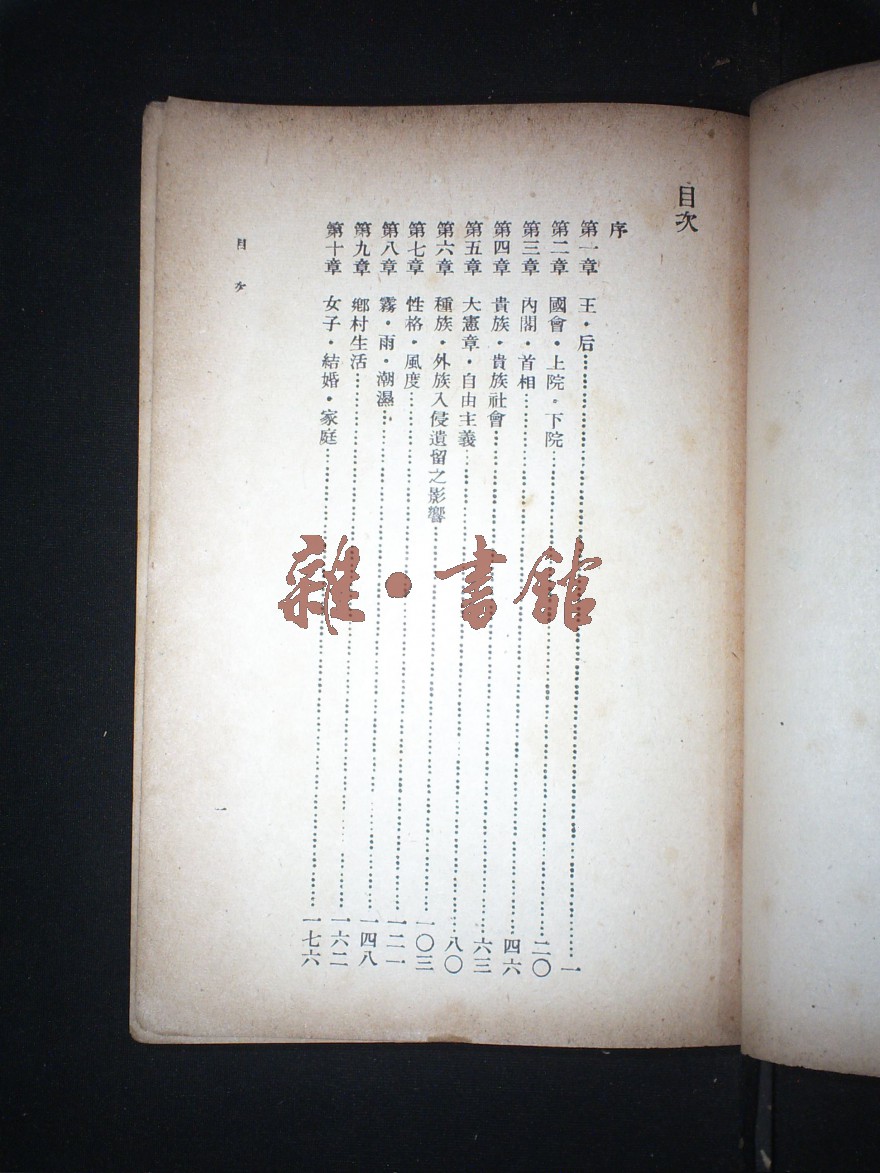 目次
序
第一章 王・后……一
第二章 國會・上院。下院……二〇
第三章 內閣・首相……四六
第四章 貴族・貴族社會……六三
第五章 大憲章・自由主義……八〇
第六章 種族・外族入侵遺留之影響……一〇三
第七章 性格・風度……一二一
第八章 霧・雨・潮濕……一四八
第九章 鄉村生活……一六二
第十章 女子・結婚・家庭……一七六
目次
一
雜・書館